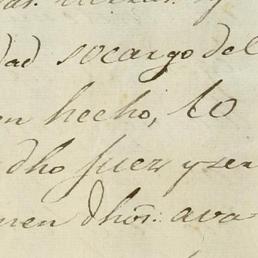 dad socargo del
en hecho, lo
dho Juez y ser
men dhōs. ava